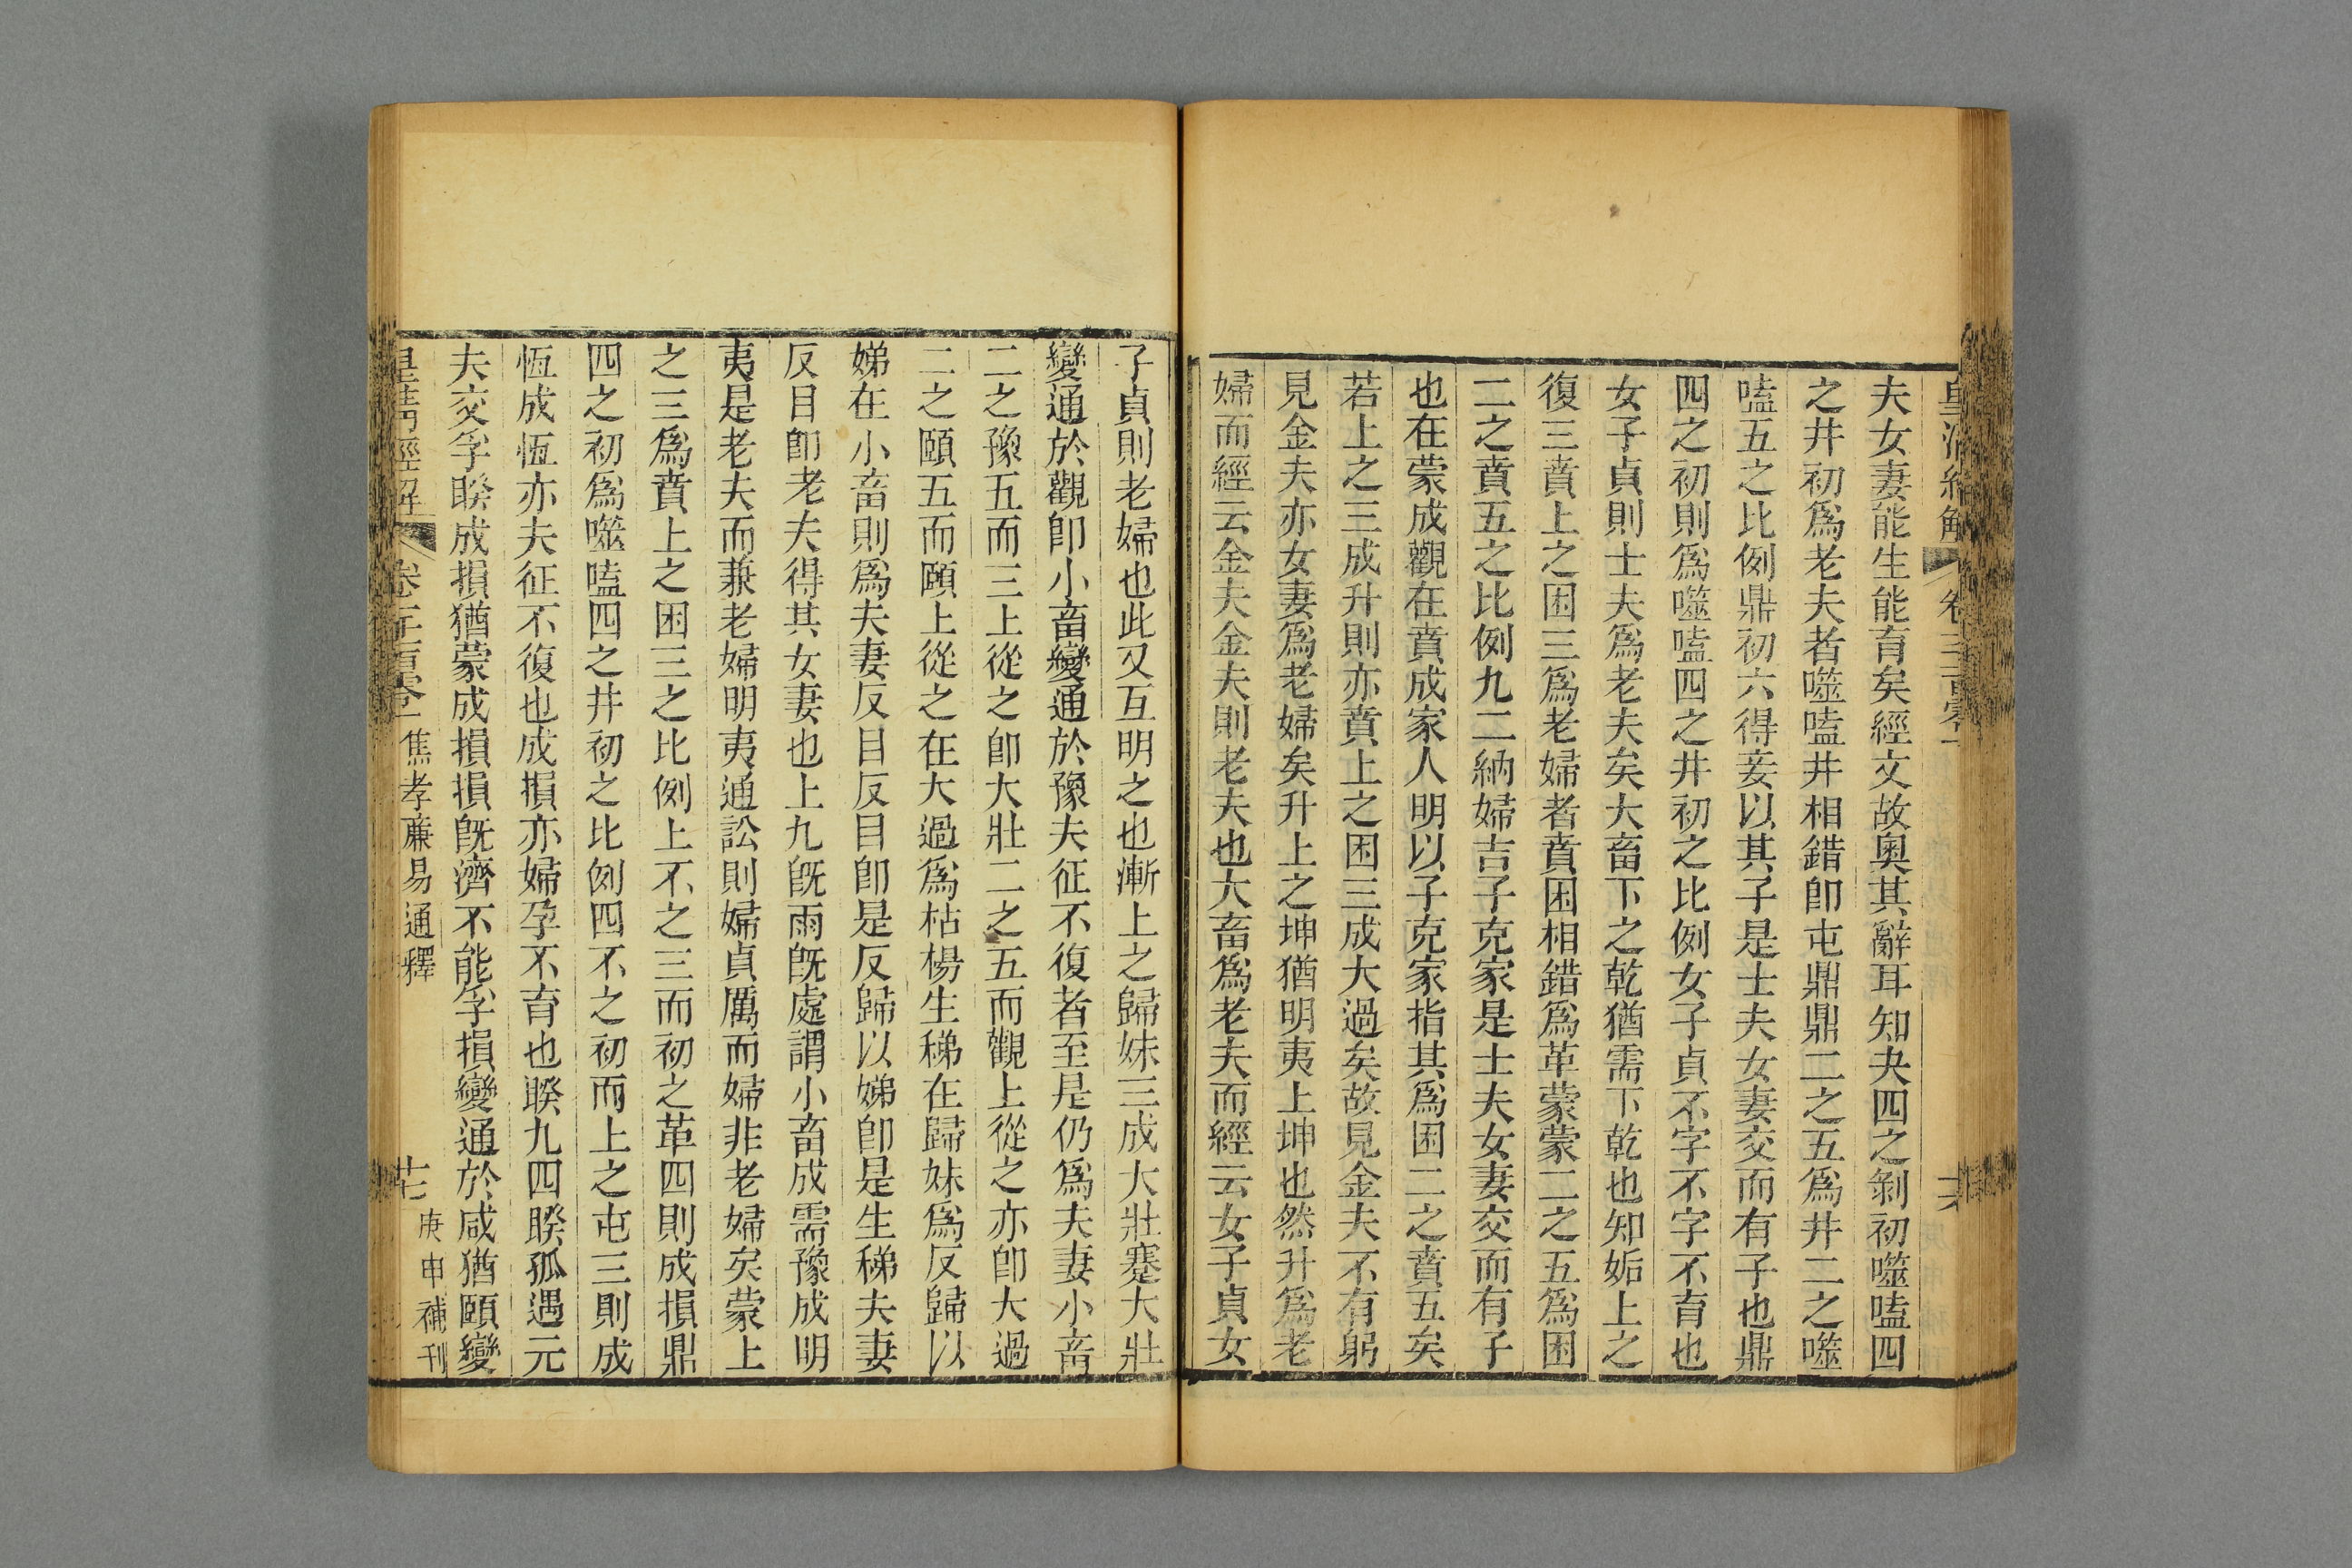 皇清經解 卷三百零一 十六
夫女妻能生能育矣經文故奧其辭耳知夬四之剝初噬嗑四
之井初爲老夫者噬嗑井相錯卽屯鼎鼎二之五爲井二之噬
嗑五之比例鼎初六得妾以其子是士夫女妻交而有子也鼎
四之初則爲噬嗑四之井初之比例女子貞不字不字不育也
女子貞則士夫爲老夫矣大畜下之乾猶需下乾也知姤上之
復三賁上之困三爲老婦者賁困相錯爲革蒙蒙二之五爲困
二之賁五之比例九二納婦吉子克家是士夫女妻交而有子
也在蒙成觀在賁成家人明以子克家指其爲困二之賁五矣
若上之三成升則亦賁上之困三成大過矣故見金夫不有躬
見金夫亦女妻爲老婦矣升上之坤猶明夷上坤也然升爲老
婦而經云金夫金夫則老夫也大畜爲老夫而經云女子貞女
子貞則老婦也此又互明之也漸上之歸妹三成大壯蹇大壯
變通於觀卽小畜變通於豫夫征不復者至是仍爲夫妻小畜
二之豫五而三上從之卽大壯二之五而觀上從之亦卽大過
二之頤五而頤上從之在大過爲枯楊生稊在歸妹爲反歸以
娣在小畜則爲夫妻反目反目卽是反歸以娣卽是生稊夫妻
反目卽老夫得其女妻也上九旣雨旣處謂小畜成需豫成明
夷是老夫而兼老婦明夷通訟則婦貞厲而婦非老婦矣蒙上
之三爲賁上之困三之比例上不之三而初之革四則成損鼎
四之初爲噬嗑四之井初之比例四不之初而上之屯三則成
恆成恆亦夫征不復也成損亦婦孕不育也睽九四睽孤遇元
夫交孚睽成損猶蒙成損損旣濟不能孚損變通於咸猶頤變
皇清經解 卷一千一百零一 焦孝廉易通釋 十七 庚申補刊